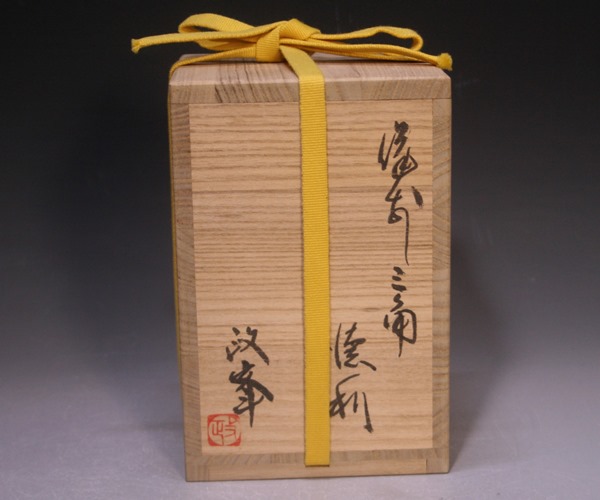 備前三角
徳利
政峯
政